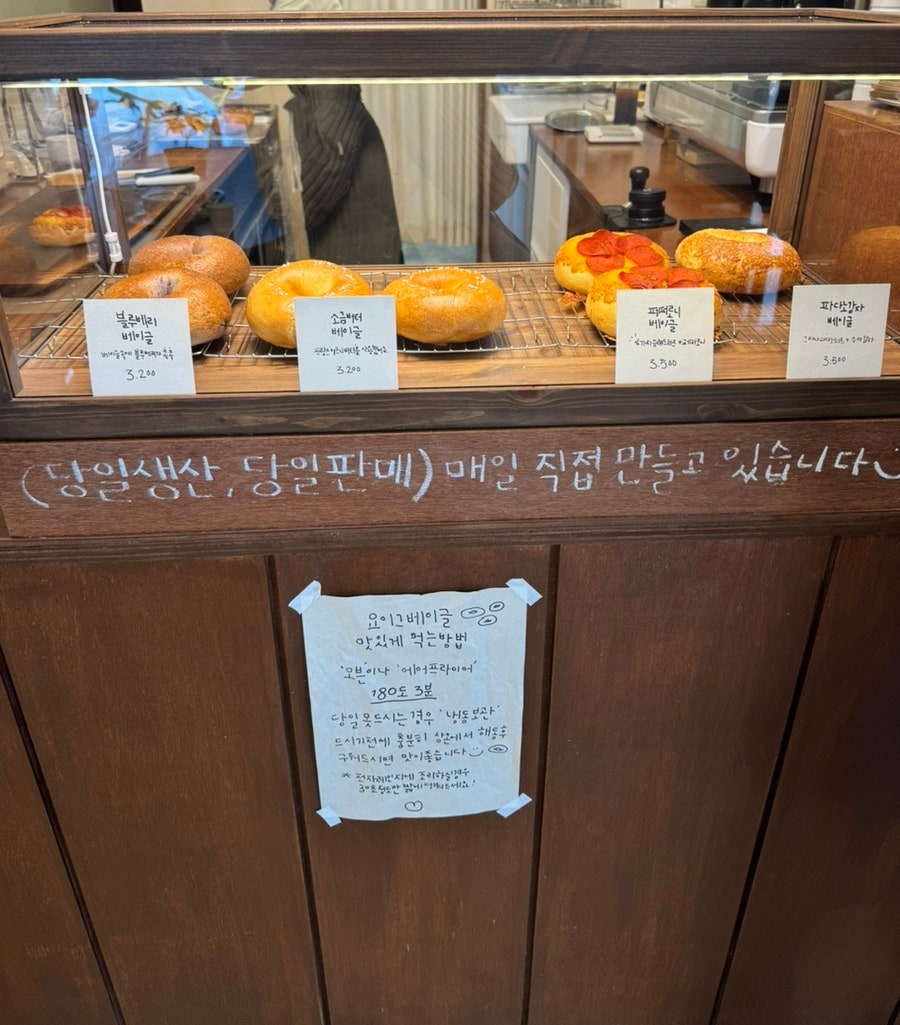 블루베리
베이글
베이글속에 블루베리가 콕콕
3.200
소금버터
베이글
3.200
페퍼로니
베이글
3.500
파다소감자
베이글
3.500
(당일생산, 당일판매) 매일 직접 만들고 있습니다
요이그베이글
맛있게 먹는방법
'오븐'이나 '에어프라이어'
180도 3분
당일 못드시는경우 '냉동보관'
드시기전에 충분히 상온에서 해동후
구워드시면 맛이좋습니다
* 전자레인지에 조리하실경우
30초정도만 짧게 데워드세요!